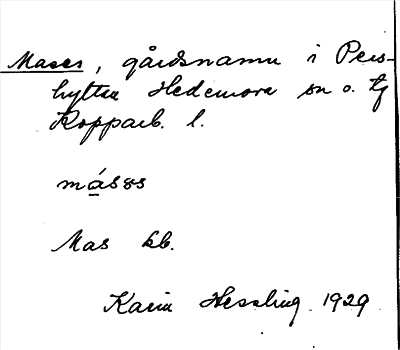 Mases, gårdsnamn i Pers-
hyttan Hedemora sn o. tg
Kopparb. l.
másəs
Mas kb.
Karin Hessling. 1929